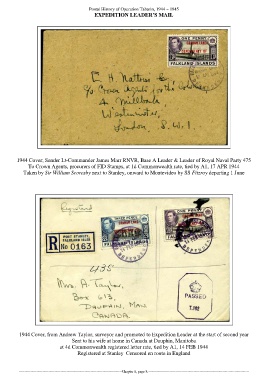 Postal History of Operation Tabarin, 1944 – 1945
EXPEDITION LEADER'S MAIL
ONE PENNY
FALKLAND ISLANDS
c/o Crown Agents for the Colonies
4 Millbank,
Westminster,
London, S.W.1.
1944 Cover, Sender Lt-Commander James Marr RNVR, Base A Leader & Leader of Royal Naval Party 475
To Crown Agents, procurers of FID Stamps, at 1d Commonwealth rate, tied by A1, 17 APR 1944
Taken by Sir William Scoresby next to Stanley, onward to Montevideo by SS Fitzroy departing 1 June
Registered
PORT STANLEY,
FALKLAND ISLDS
R No 0163
435
Mrs. A. Taylor,
Box 613,
Dauphin, Man
CANADA
PASSED
1944 Cover, from Andrew Taylor, surveyor and promoted to Expedition Leader at the start of second year
Sent to his wife at home in Canada at Dauphin, Manitoba
at 4d Commonwealth registered letter rate, tied by A1, 14 FEB 1944
Registered at Stanley Censored en route in England